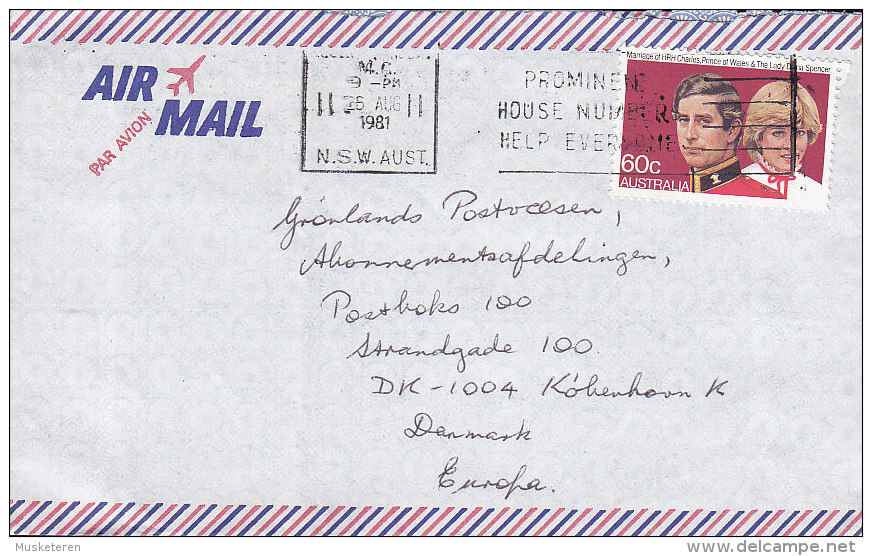 AIR
MAIL
PAR AVION
M.C.
9 -PM
26 AUG
1981
N.S.W. AUST.
PROMINENT
HOUSE NUMBERS
HELP EVERYONE
Marriage of HRH Charles, Prince of Wales & The Lady Diana Spencer
60c
AUSTRALIA
Grönlands Postvæsen,
Abonnementsafdelingen,
Postboks 100
Strandgade 100.
DK-1004 Köbenhavn K
Danmark
Europa.
Musketeren
delcampe.net